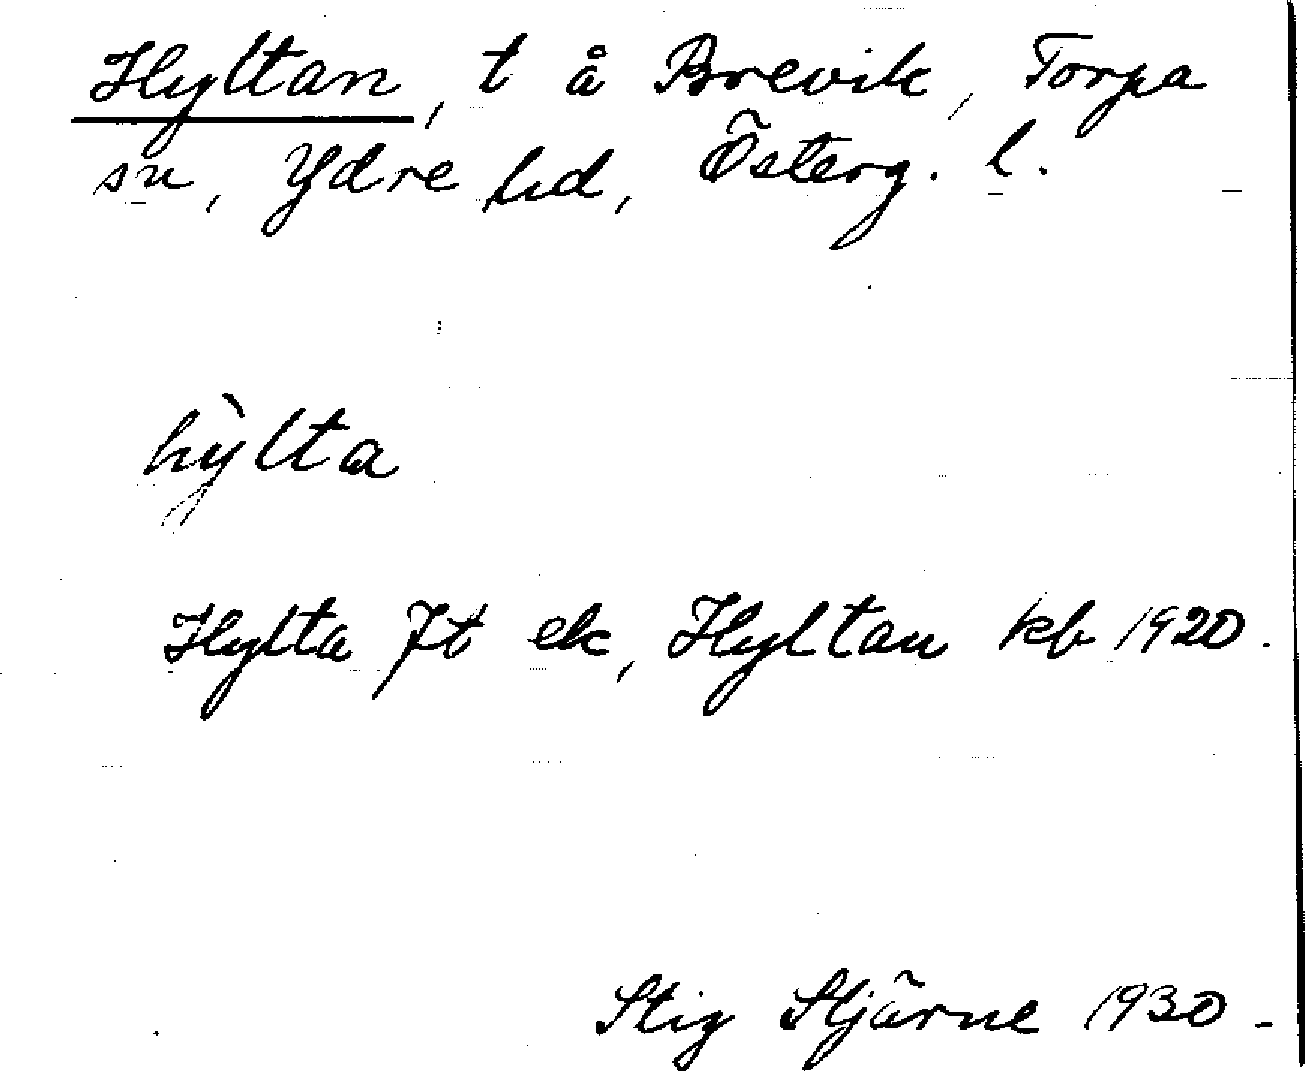 Hyltan, t å Brevik, Torpa
sn, Ydre hd, Österg. l.
hỳlta
Hylta Jt ek, Hyltan kb 1920.
Stig Stjärne 1930.